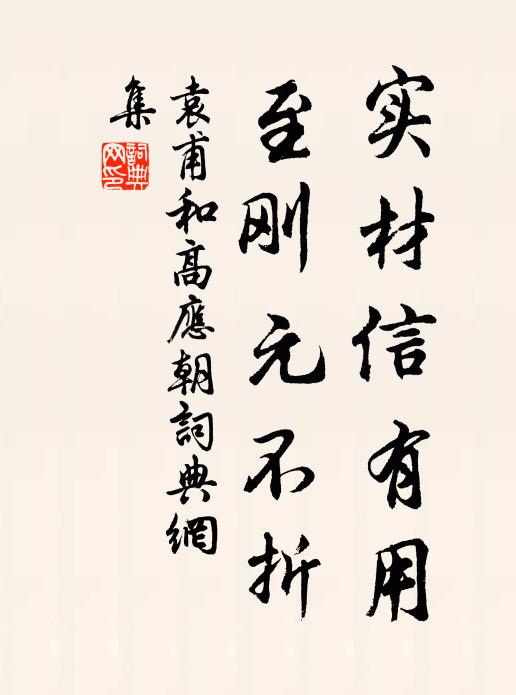 实材信有用
至刚元不折
袁甫和高應朝詞典網
集
詞典網印